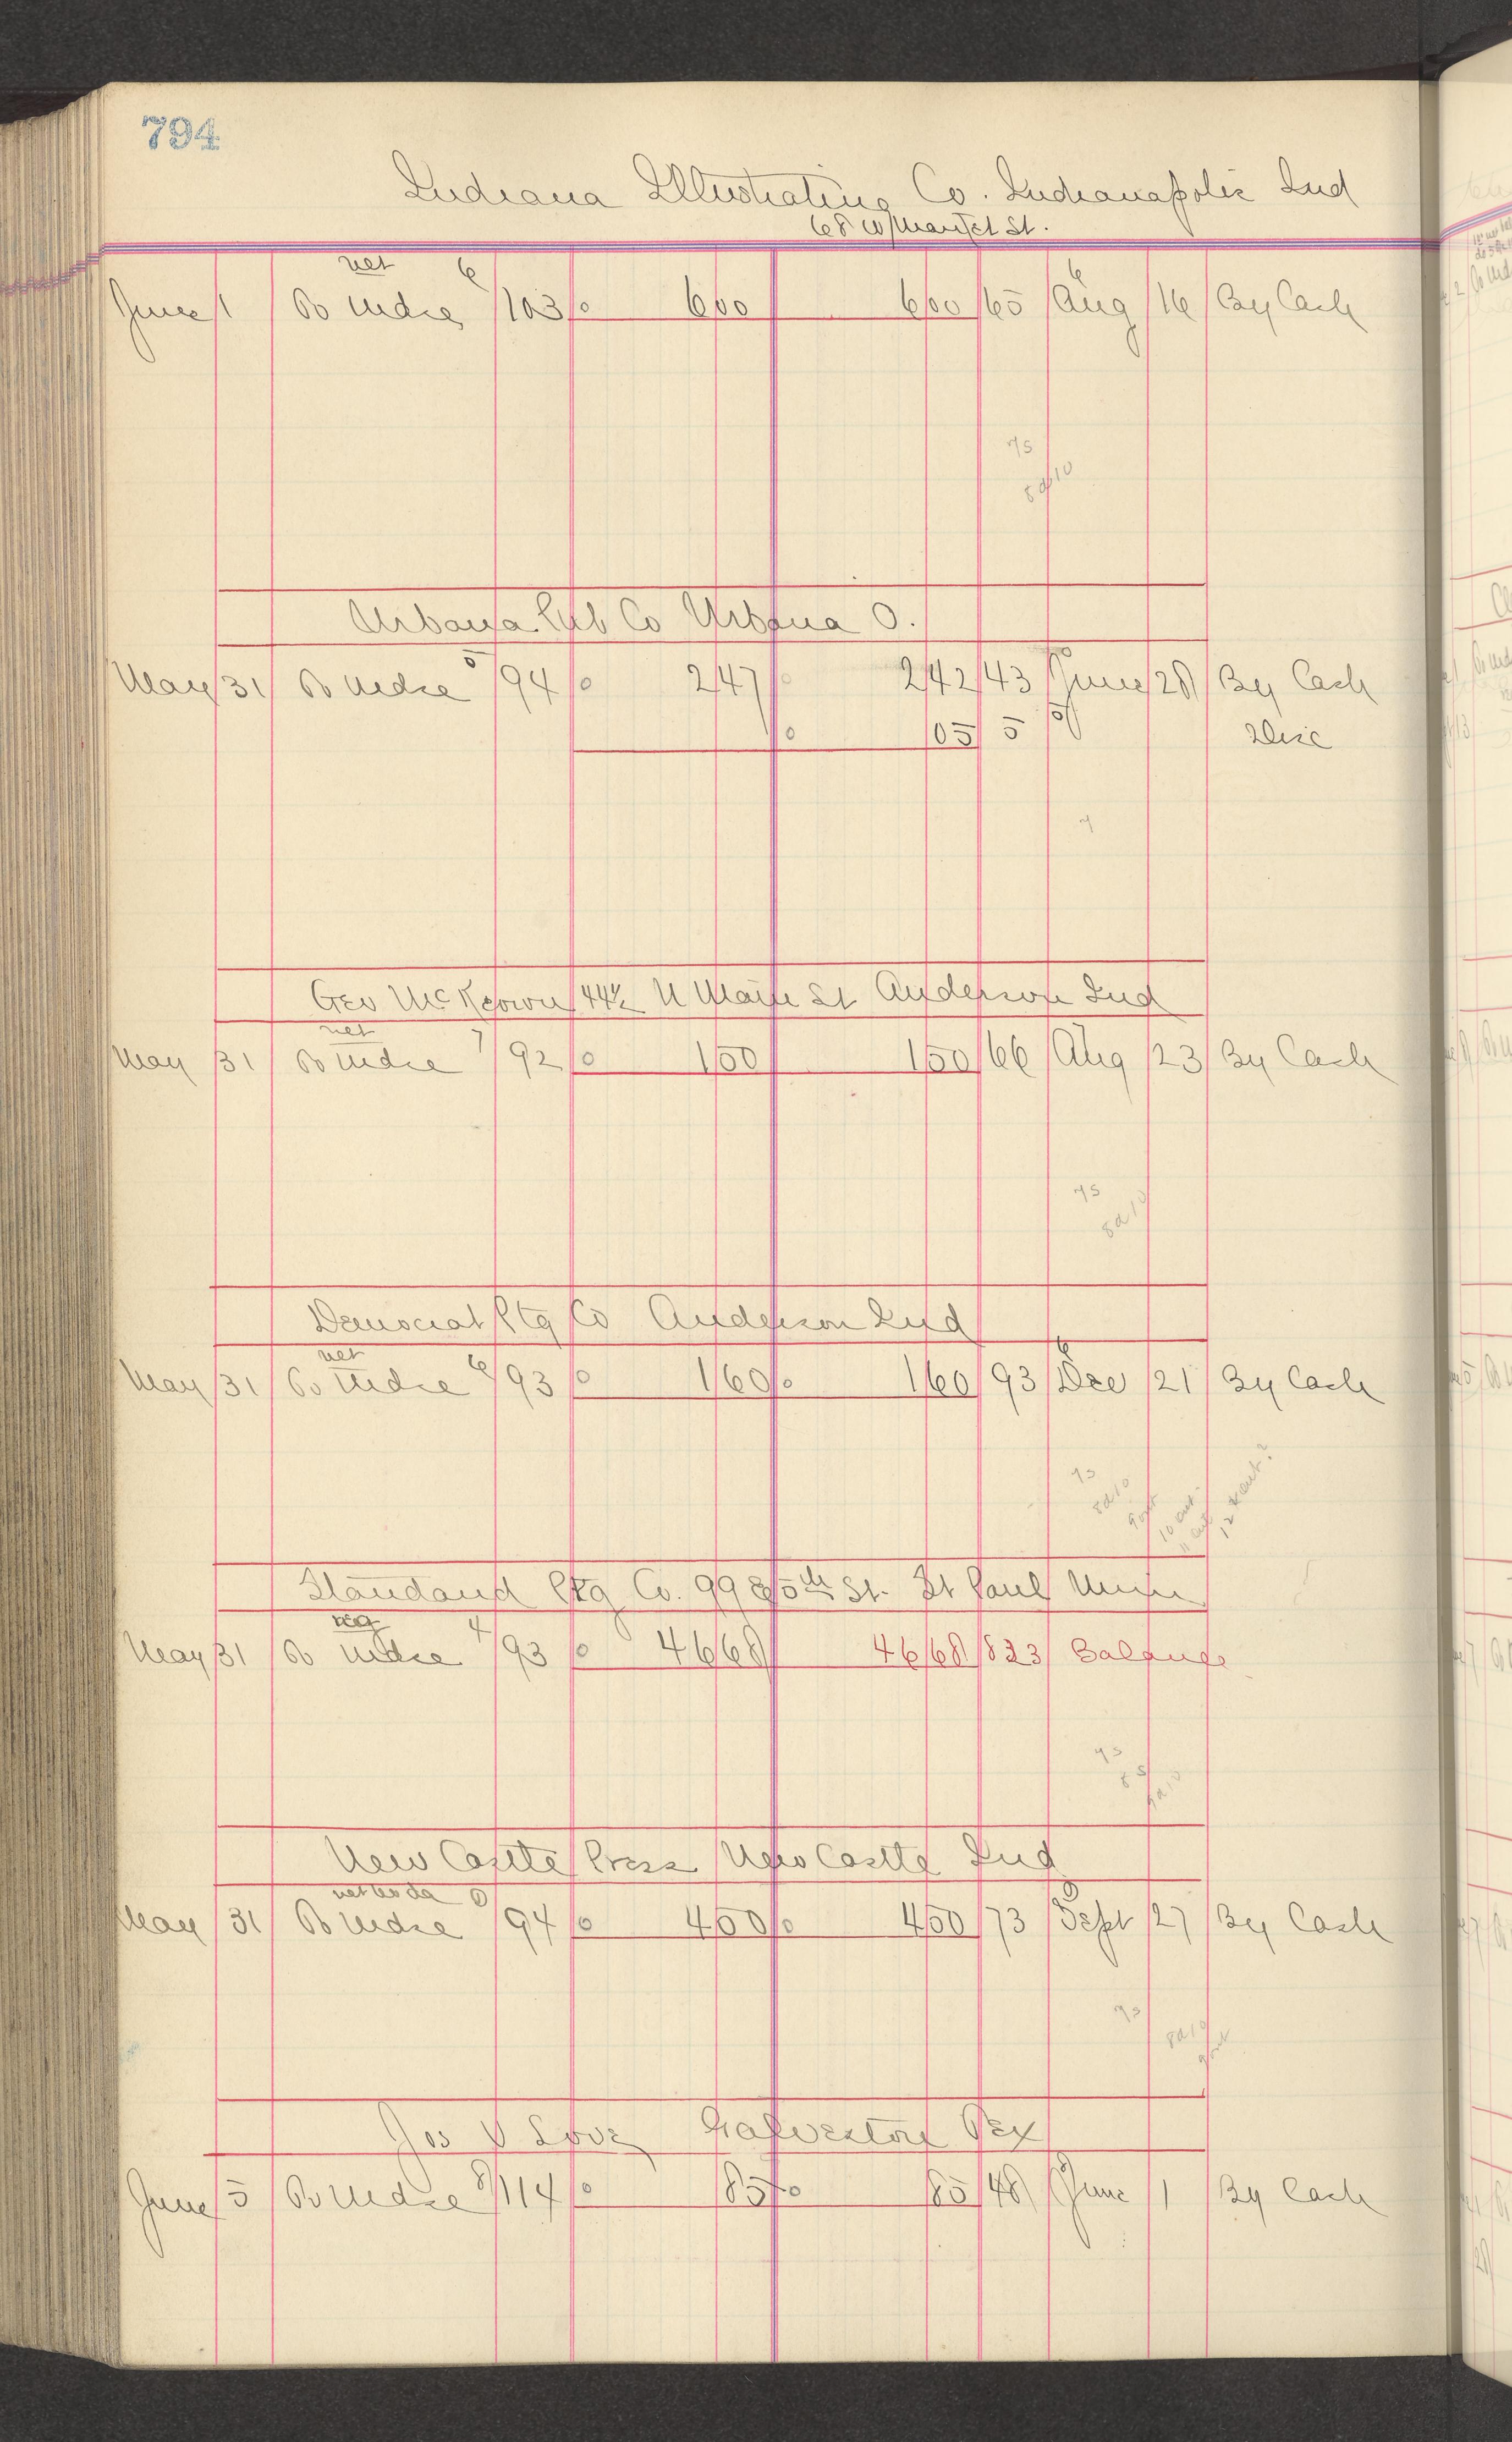 794
Indiana Illustrating Co. Indianapolis Ind
68 W Market St.
net 6 6
June 1 To Mdse 103 6 00 6 00 65 Aug 16 By Cash
75
8d10
Urbana Pub Co Urbana O.
May 31 To Mdse 5 94 2 47 2 42 43 June 28 By Cash
05 5 Disc
7
Geo McKeown 44½ N Main St Anderson Ind
net
May 31 To Mdse 7 92 1 50 1 50 66 Aug 23 By Cash
75
8d10
Democrat Ptg Co Anderson Ind
net 6
May 31 To Mdse 6 93 1 60 1 60 93 Dec 21 By Cash
75
8d10
Standard Ptg Co. 99 E 5th St. St Paul Minn
reg
May 31 To Mdse 4 93 46 68 46 68 823 Balance
75
New Castle Press New Castle Ind
May 31 To Mdse 94 4 50 4 50 73 Sept 27 By Cash
75
8d10
Jos V Love Galveston Tex
June 5 To Mdse 8 114 85 85 48 June 1 By Cash